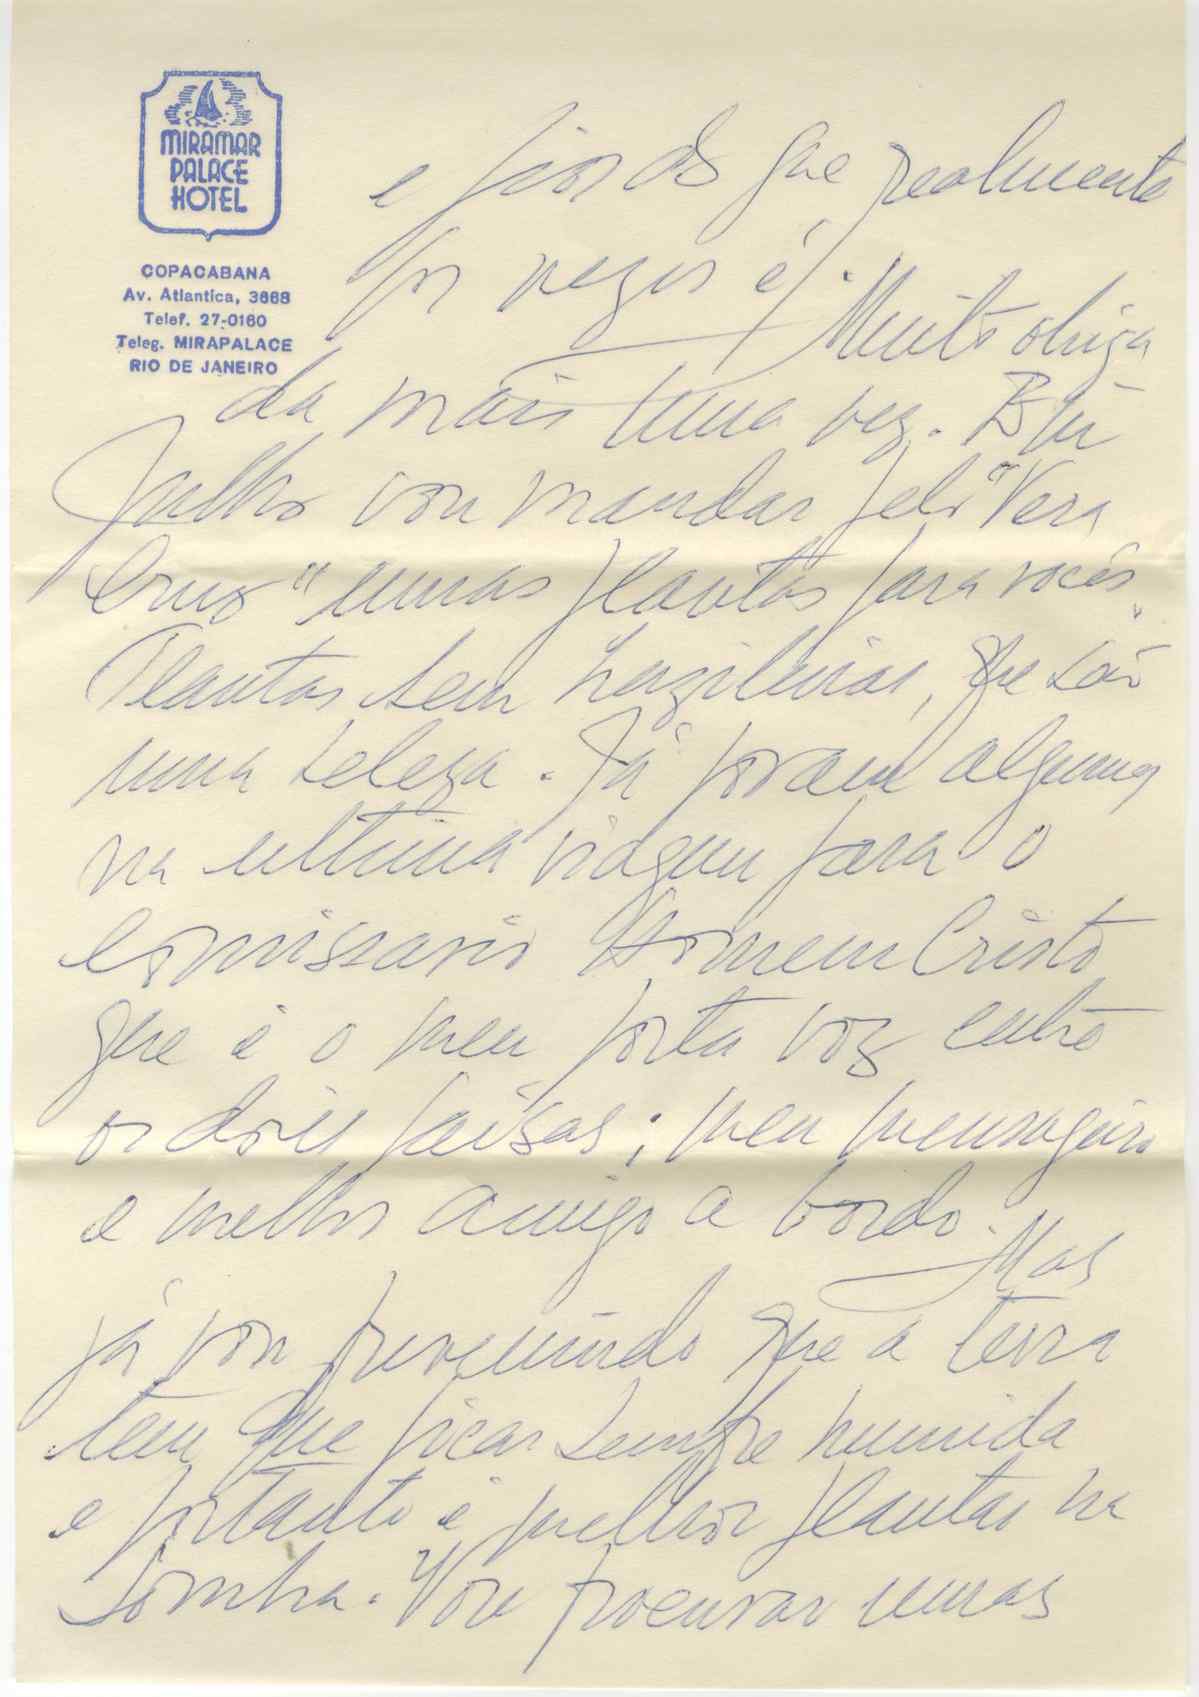 MIRAMAR
PALACE
HOTEL
COPACABANA
Av. Atlantica, 3668
Telef. 27-0160
Teleg. MIRAPALACE
RIO DE JANEIRO
e que realmente
por vezes é. Muito obriga
da mais uma vez. Em
Julho vou mandar pelo "Vera
Cruz" umas plantas para vocês.
Plantas bem brazileiras, que são
uma beleza. Já foram algumas
na ultima viagem para o
Comissario Homem Cristo
que é o meu porta voz entre
os dois paises; meu mensageiro
e melhor amigo a bordo. Mas
já vou prevenindo que a terra
tem que ficar sempre humida
e portanto é melhor plantar na
Sombra. Vou procurar umas